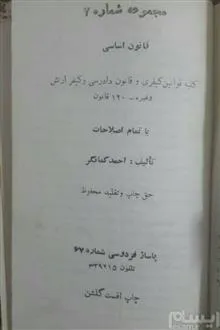 مجموعه شماره ۲
قانون اساسی
کلیه قوانین کیفری و قانون دادرسی و کیفر ارتش
وغیره - ۱۲۰ قانون
با تمام اصلاحات
تألیف: احمد کمانگر
حق چاپ و تقلید محفوظ
پاساژ فردوسی شماره ۶۷
تلفون ۳۳۹۲۱۵
چاپ افست گلشن
بسام